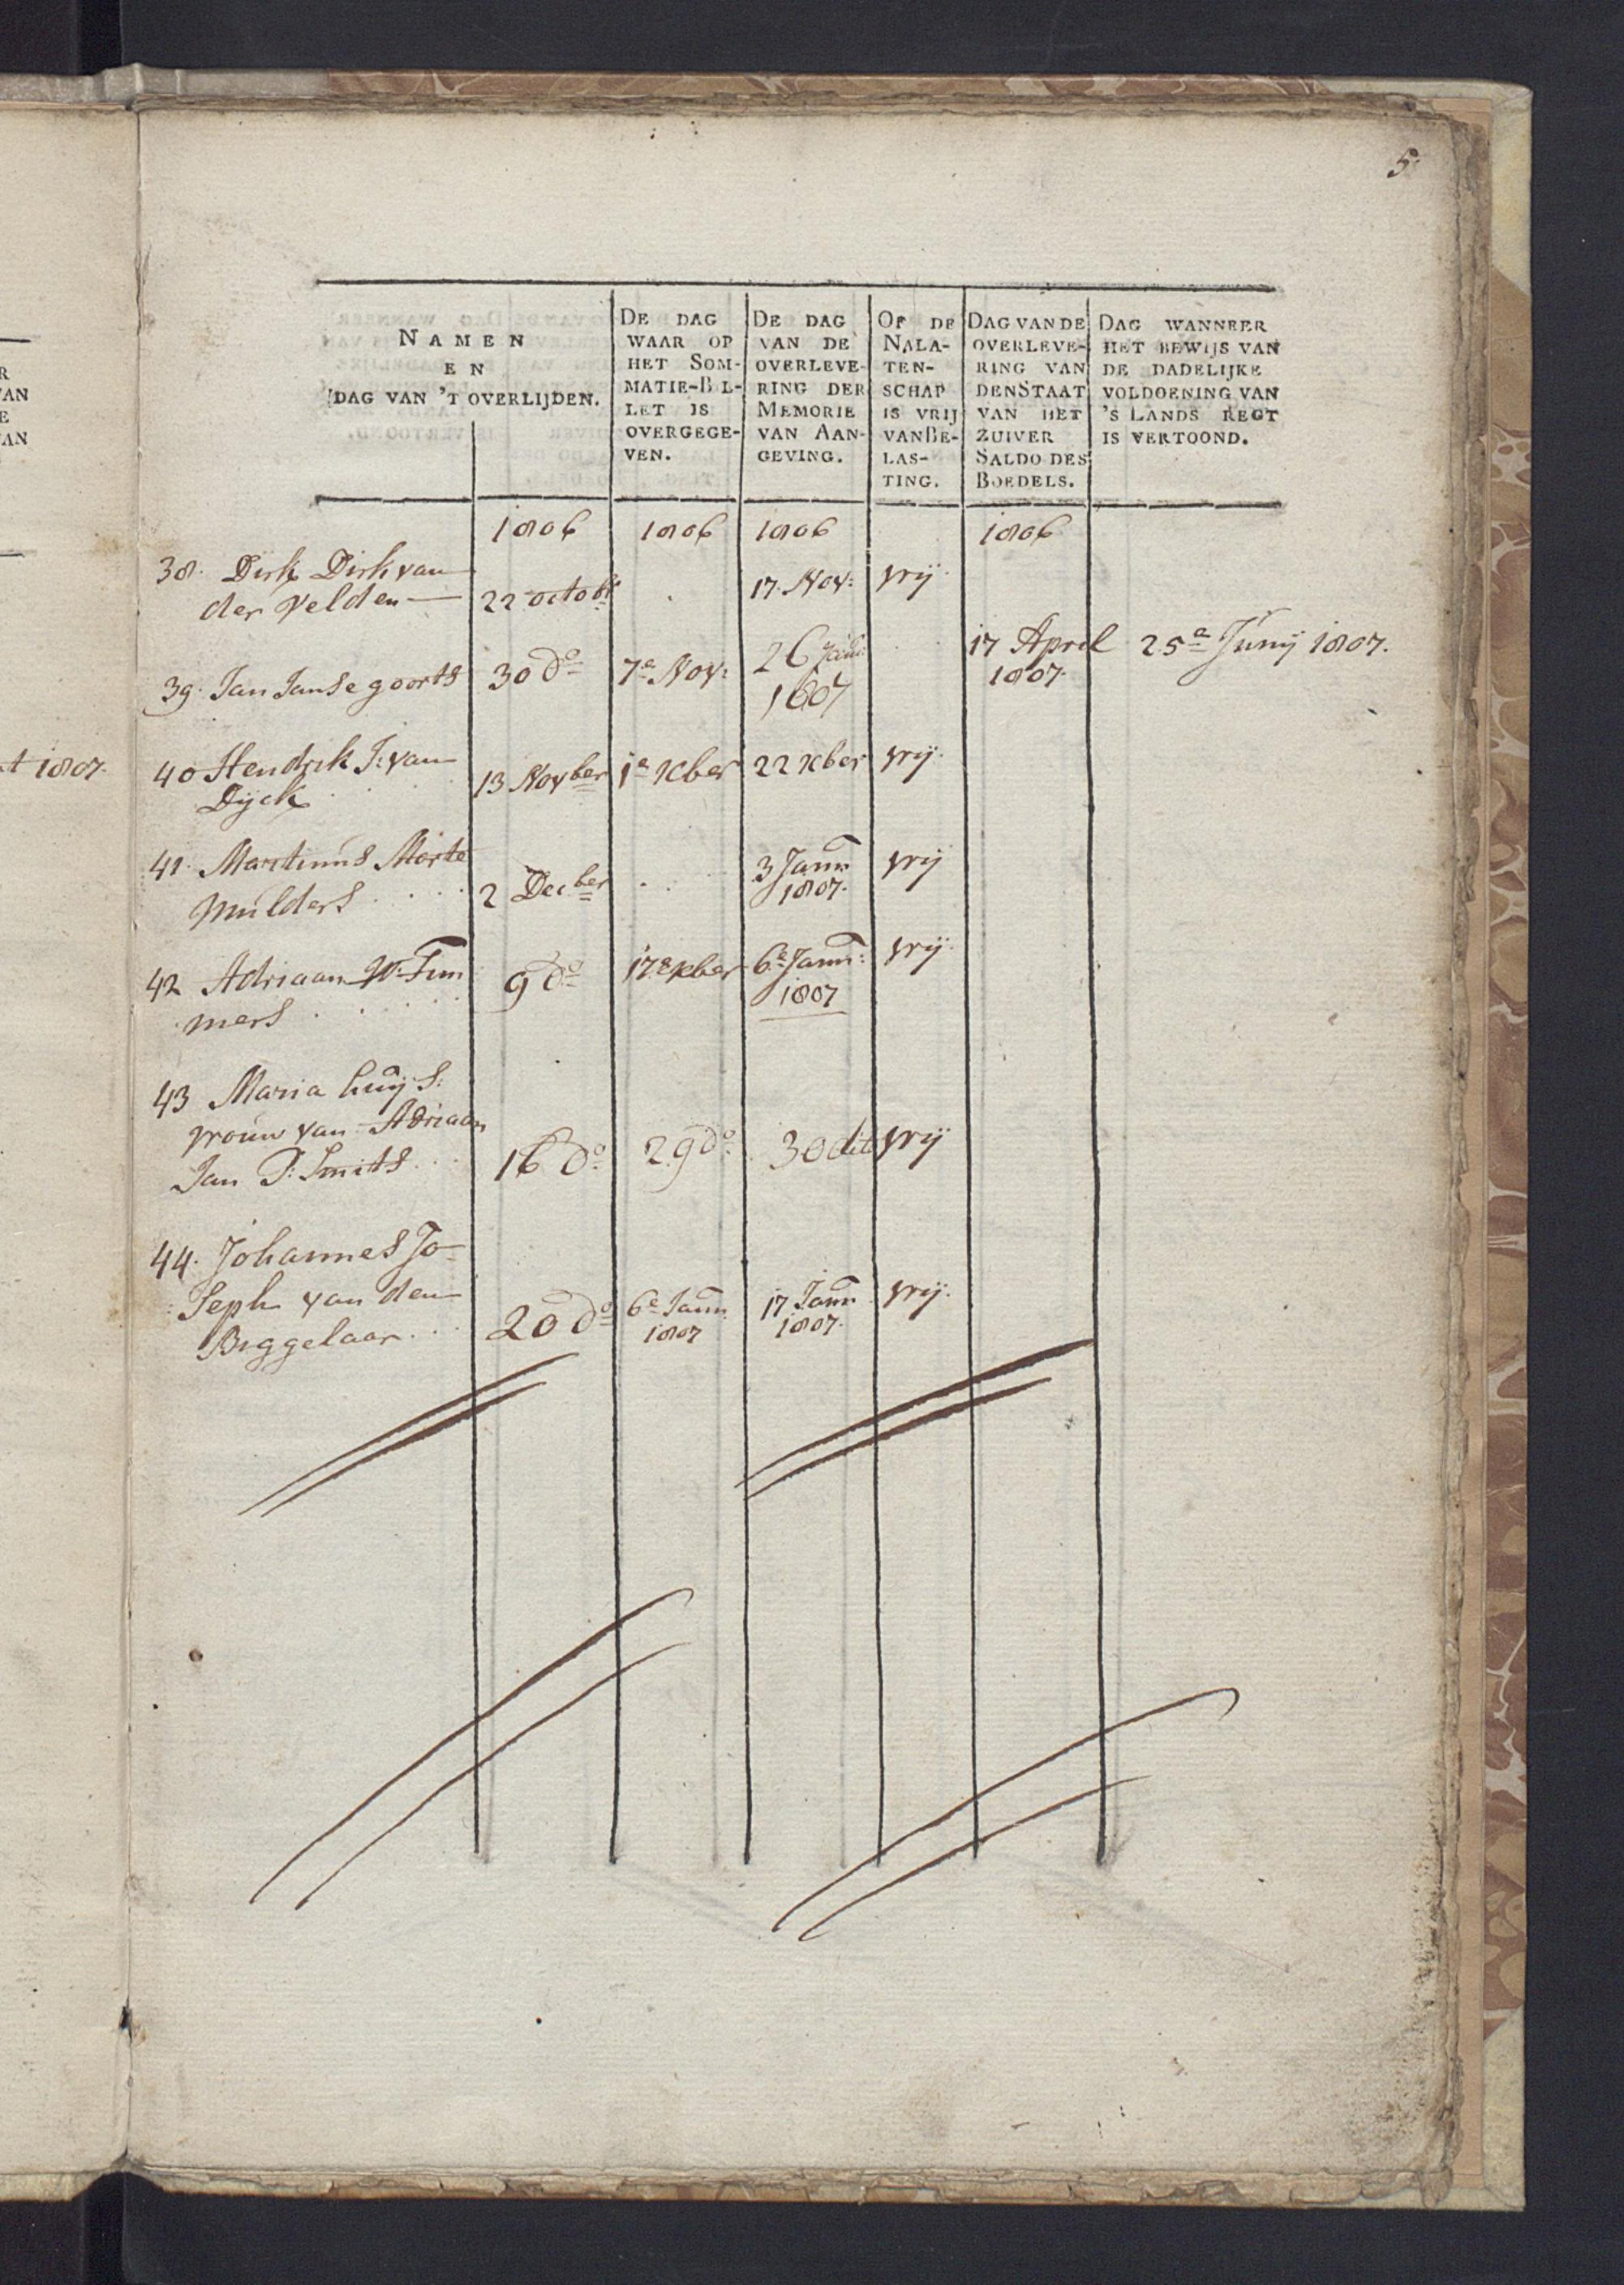 5.
NAMEN
EN
DAG VAN 'T OVERLIJDEN.
DE DAG
WAAR OP
HET SOM-
MATIE-BIL-
LET IS
OVERGEGE-
VEN.
DE DAG
VAN DE
OVERLEVE-
RING DER
MEMORIE
VAN AAN-
GEVING.
OF DE
NALA-
TEN-
SCHAP
IS VRIJ
VAN BE-
LAS-
TING.
DAG VAN DE
OVERLEVE-
RING VAN
DEN STAAT
VAN HET
ZUIVER
SALDO DES
BOEDELS.
DAG WANNEER
HET BEWIJS VAN
DE DADELIJKE
VOLDOENING VAN
'S LANDS REGT
IS VERTOOND.
1806 1806 1806 1806
38. Dirk Dirk van
der Velden 22 octobr 17. Nov: vrij
39. Jan Janse goorts 30 do 7e Nov: 26 Jan: 1807 17 April 1807. 25e Junij 1807.
40 Hendrik J: van
Dijck 13 Novber 1e xber 22 xber vrij.
41. Martinus Marte
Mulders 2 Decber 3 Janu 1807. vrij
42 Adriaan W: Tim
mers 9 do 17e xber 6e Janu: 1807 vrij.
43 Maria huijs:
vrouw van Adriaan
Jan P: Smits 16 do 29 do 30 dito vrij
44. Johannes Jo-
seph van den
Biggelaar 20 do 6e Janu 1807 17 Janu 1807. vrij.
R
VAN
E
VAN
t 1807.